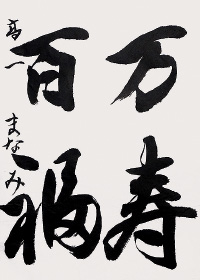 万寿
百福
高一 まなみ